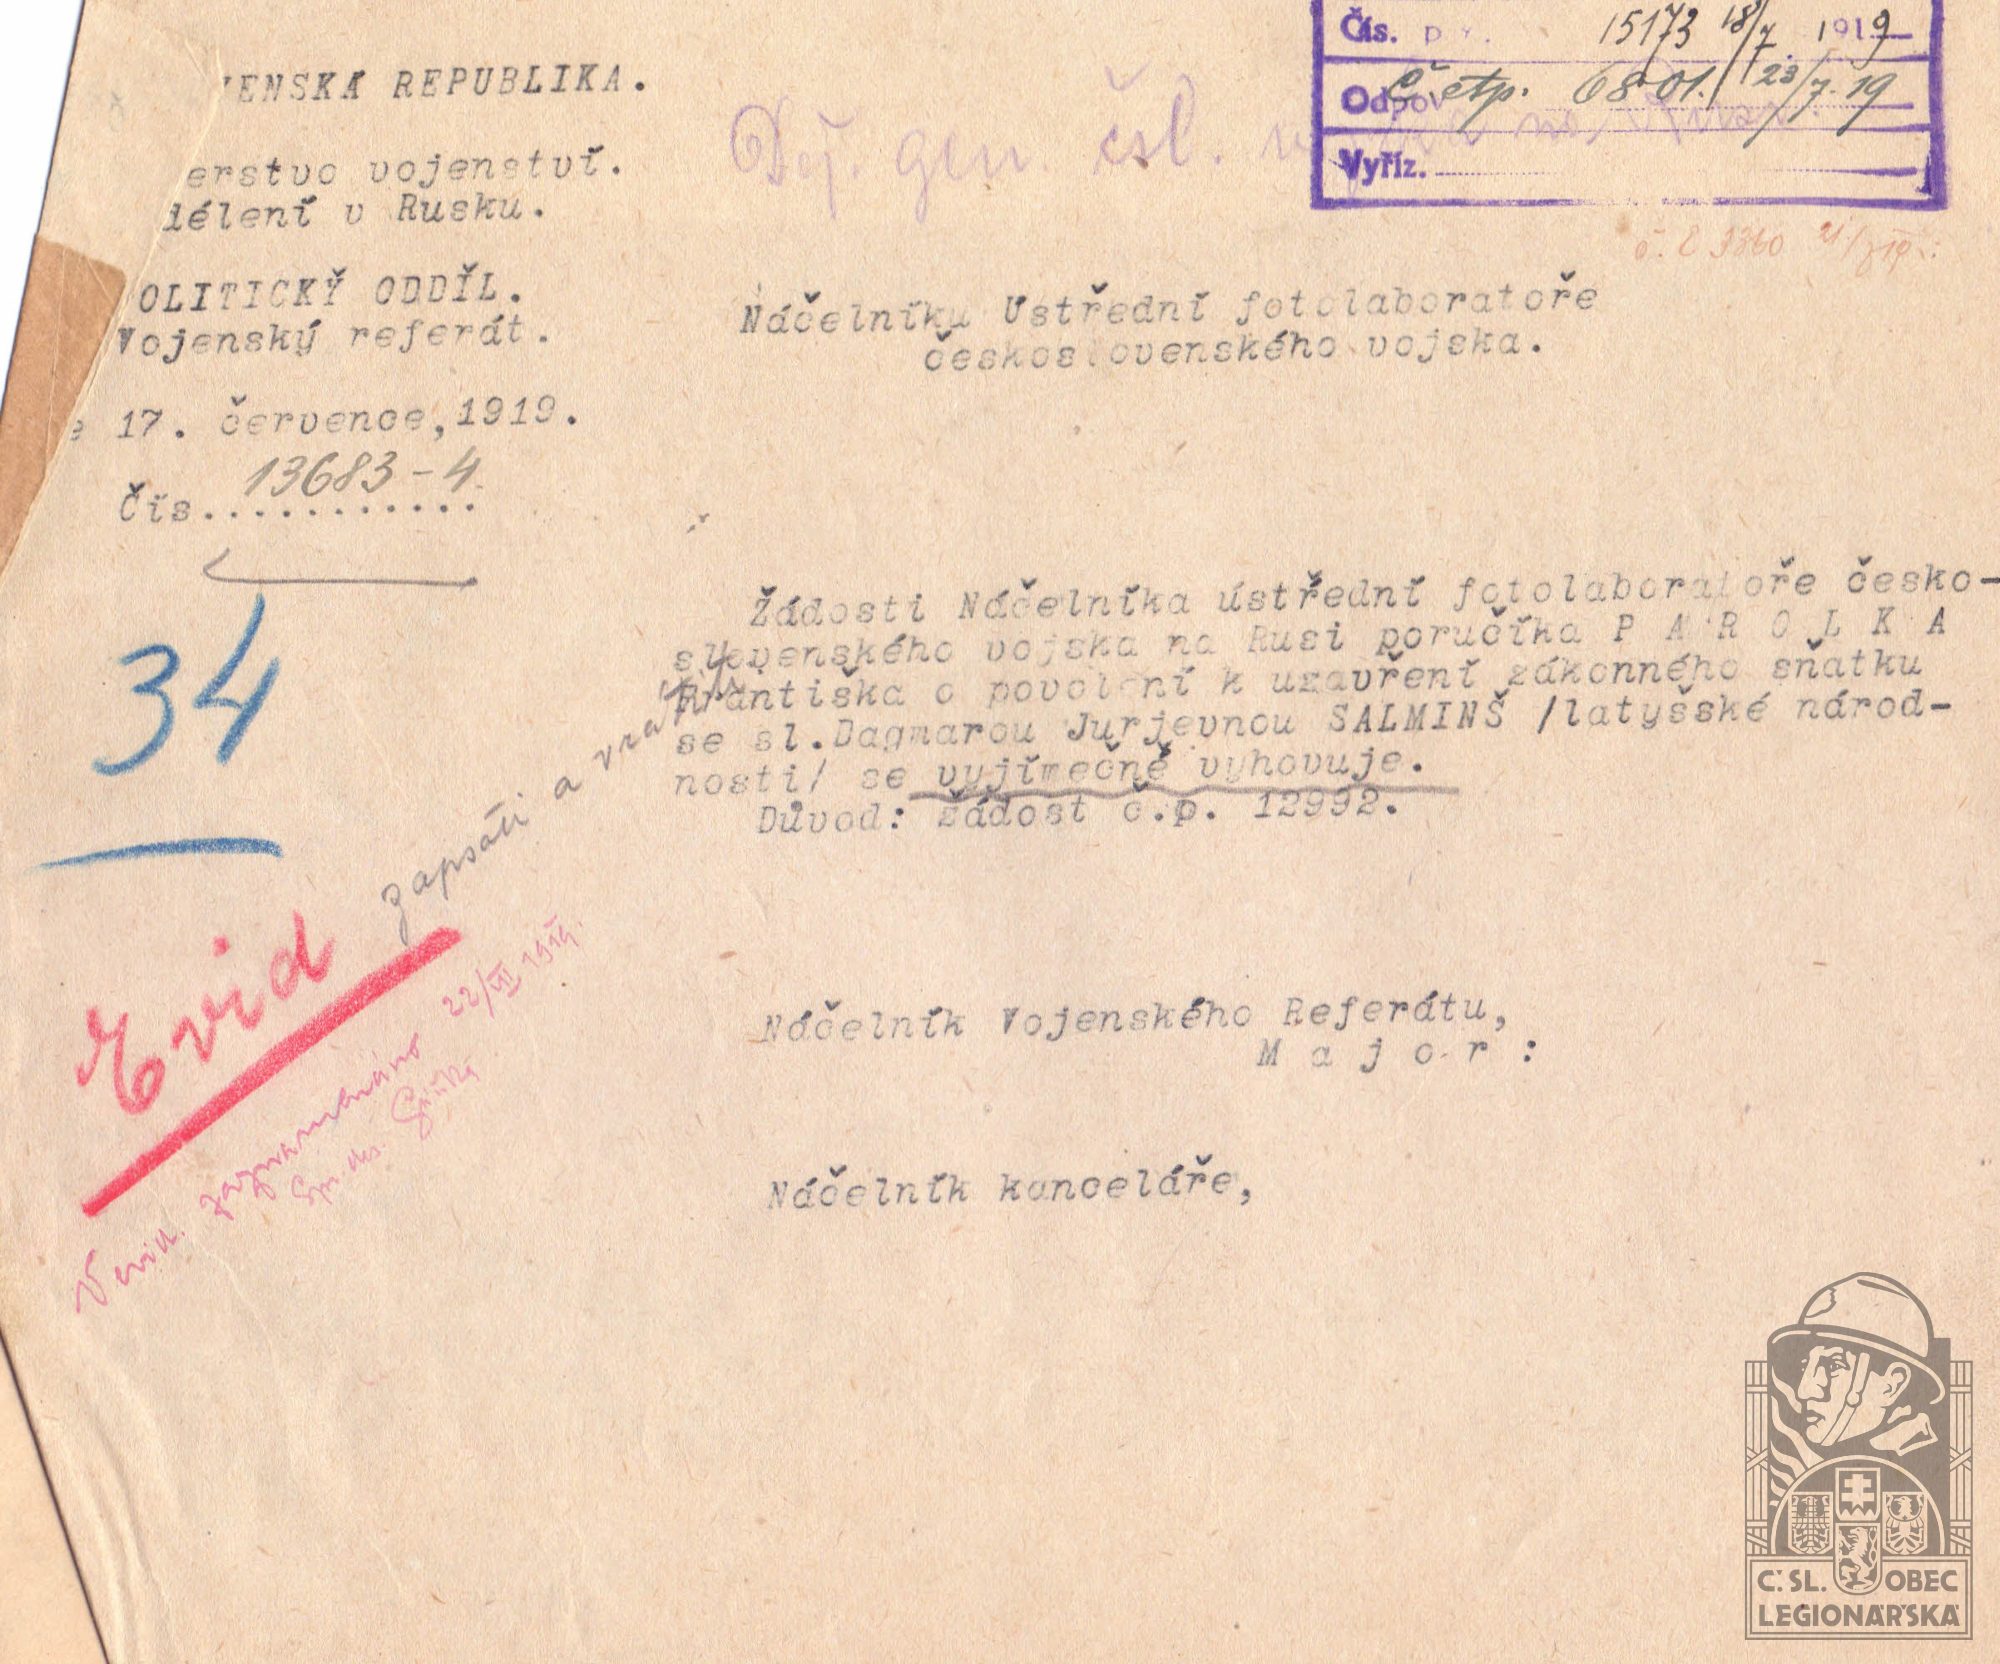 Čís. 15173 18/7. 1919
Odpov č. etp. 6801. 23/7. 19
Vyříz.
VENSKÁ REPUBLIKA.
erstvo vojenství.
dělení v Rusku.
OLITICKÝ ODDÍL.
Vojenský referát.
e 17. července,1919.
Čís........... 13683-4.
Děj. gen. čsl.
Náčelníku Ústřední fotolaboratoře
československého vojska.
34
Žádosti Náčelníka ústřední fotolaboratoře česko-
slovenského vojska na Rusi poručíka P A R O L K A
Františka o povolení k uzavření zákonného sňatku
se sl.Dagmarou Jurjevnou SALMINŠ /latyšské národ-
nosti/ se vyjímečně vyhovuje.
Důvod: žádost č.p. 12992.
Evid
zapsáti a
V evid. zaznamenáno 22/VII 1919.
Náčelník Vojenského Referátu,
M a j o r :
Náčelník kanceláře,
Č.SL. OBEC
LEGIONÁŘSKÁ